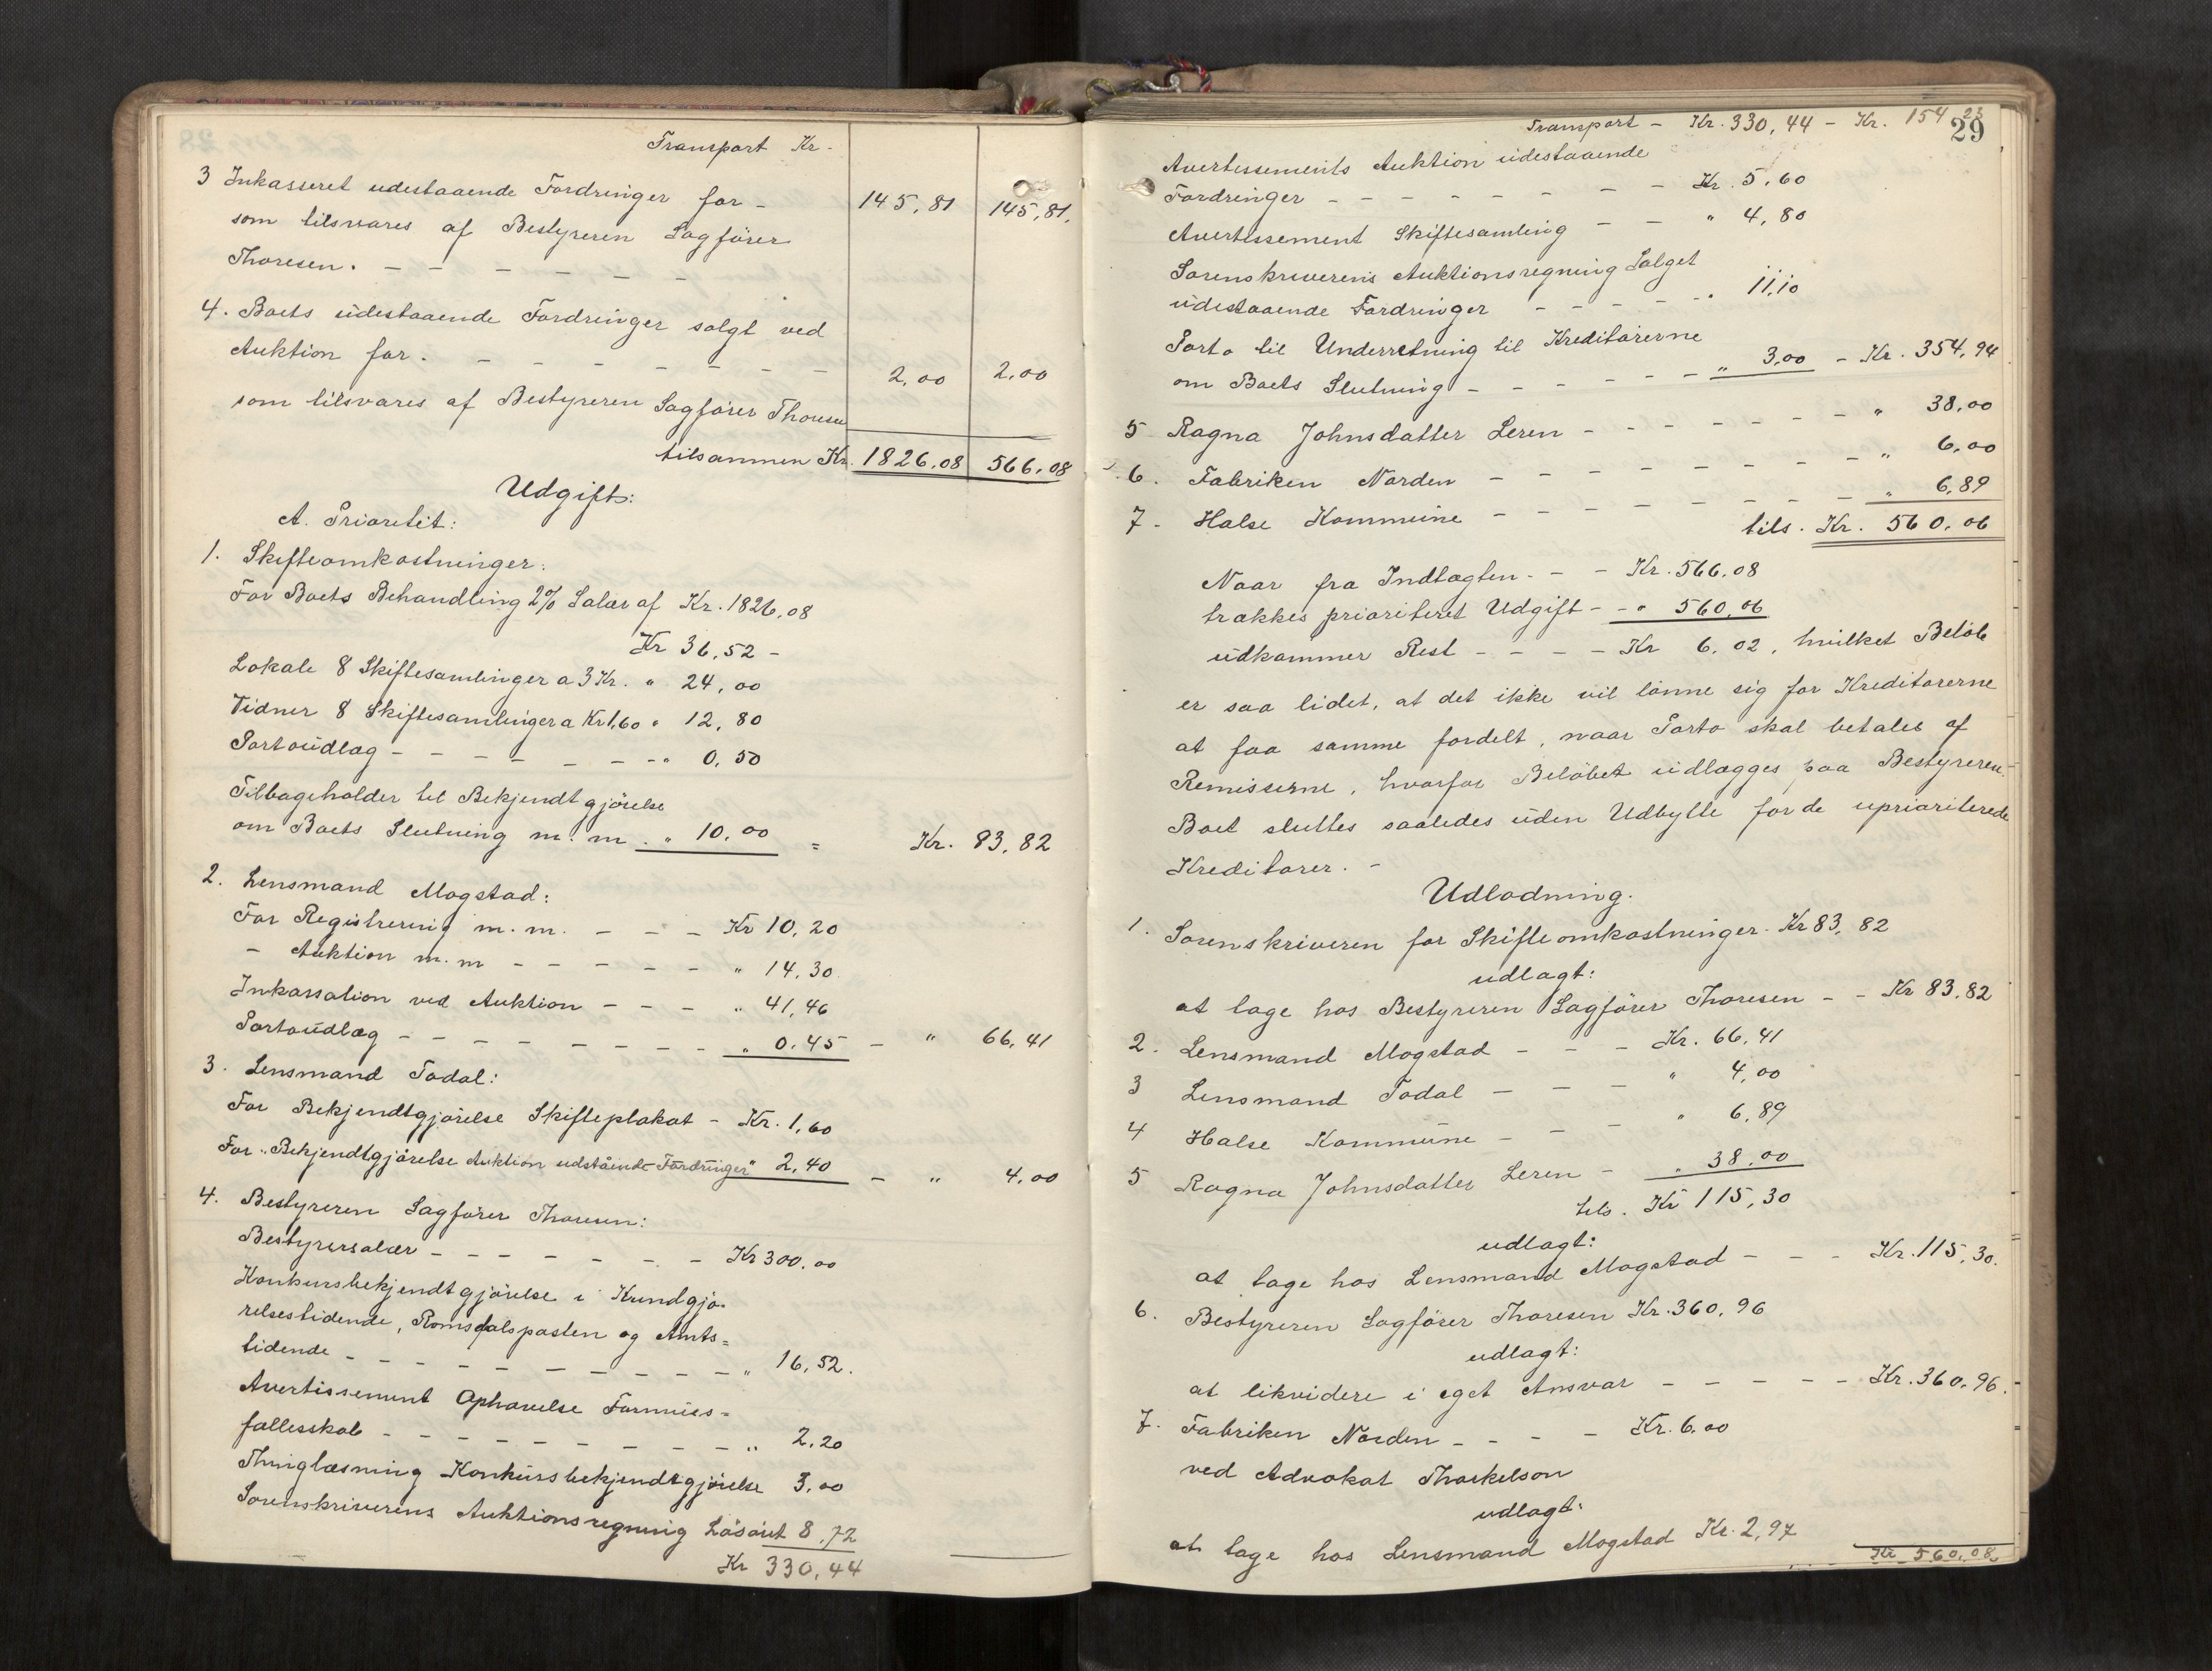 Transport Kr. -
3 Inkasseret udestaaende Fordringer for - 145,81 145,81.
som tilsvares af Bestyreren Sagfører
Thoresen. - - - - - -
4. Boets udestaaende Fordringer solgt ved
Auktion for. - - - - - - 2,00 2,00
som tilsvares af Bestyreren Sagfører Thoresen
tilsammen Kr. 1826,08 566,08
Udgift:
A. Prioritet:
1. Skifteomkostninger:
For Boets Behandling 2% Salær af Kr. 1826,08
Kr 36,52 -
Lokale 8 Skiftesamlinger a 3 Kr. " 24,00
Vidner 8 Skiftesamlinger a Kr 1,60 " 12,80
Portoudlæg - - - - - - - " 0,50
Tilbageholder til Bekjendtgjørelse
om Boets Slutning m. m. " 10,00 = Kr. 83,82
2. Lensmand Mogstad:
For Registrering m. m. - - - Kr 10,20
- Auktion m. m - - - - - " 14,30
Inkassation ved Auktion - - - " 41,46
Portoudlæg - - - - - - - - " 0,45 - " 66,41
3. Lensmand Todal:
For Bekjendtgjørelse Skifteplakat - Kr. 1,60
For "Bekjendtgjørelse Auktion udstående Fordringer" 2,40 - " 4,00
4. Bestyreren Sagfører Thoresen:
Bestyrersalær - - - - - - - Kr 300,00
Konkursbekjendtgjørelse i Kundgjø-
relsestidende, Romsdalsposten og Amts=
tidende - - - - - - - - - - " 16,52.
Avertissement Ophævelse Formues=
fællesskab - - - - - - - - - " 2,20
Thinglæsning Konkursbekjendtgjørelse 3,00
Sorenskriverens Auktionsregning Løsøret 8,72
Kr 330,44
Transport - Kr. 330,44 - Kr. 154,23
29
Avertissements Auktion udestaaende
Fordringer - - - - - - - - Kr. 5,60
Avertissement Skiftesamling - - " 4,80
Sorenskriverens Auktionsregning Salget
udestaaende Fordringer - - - - - " 11,10
Porto til Underretning til Kreditorerne
om Boets Slutning - - - - - - " 3,00 - Kr. 354,94
5 Ragna Johnsdatter Leren - - - - - - - " 38,00
6. Fabriken Norden - - - - - - - - " 6,00
7. Halse Kommune - - - - - - - - " 6,89
tils. Kr. 560,06
Naar fra Indtægten - - - Kr. 566,08
trækkes prioriteret Udgift - - " 560,06
udkommer Rest - - - - Kr 6,02, hvilket Beløb
er saa lidet, at det ikke vil lønne sig for Kreditorerne
at faa samme fordelt, naar Porto skal betales af
Remisserne, hvorfor Beløbet udlægges paa Bestyreren.-
Boet sluttes saaledes uden Udbytte for de uprioriterede
Kreditorer. -
Udlodning.
1. Sorenskriveren for Skifteomkostninger. Kr 83,82
udlagt:
at tage hos Bestyreren Sagfører Thoresen - - Kr 83,82
2. Lensmand Mogstad - - - Kr. 66,41
3 Lensmand Todal - - - " 4,00
4 Halse Kommune - - - " 6,89
5 Ragna Johnsdatter Leren - " 38,00
tils. Kr 115,30
udlagt:
at tage hos Lensmand Mogstad - - - Kr. 115,30.
6. Bestyreren Sagfører Thoresen Kr. 360,96
udlagt:
at likvidere i eget Ansvar - - - - - Kr. 360,96.
7. Fabriken Norden - - - - Kr. 6,00
ved Advokat Thorkelson
udlagt:
at tage hos Lensmand Mogstad Kr. 2,97
Kr 560,08